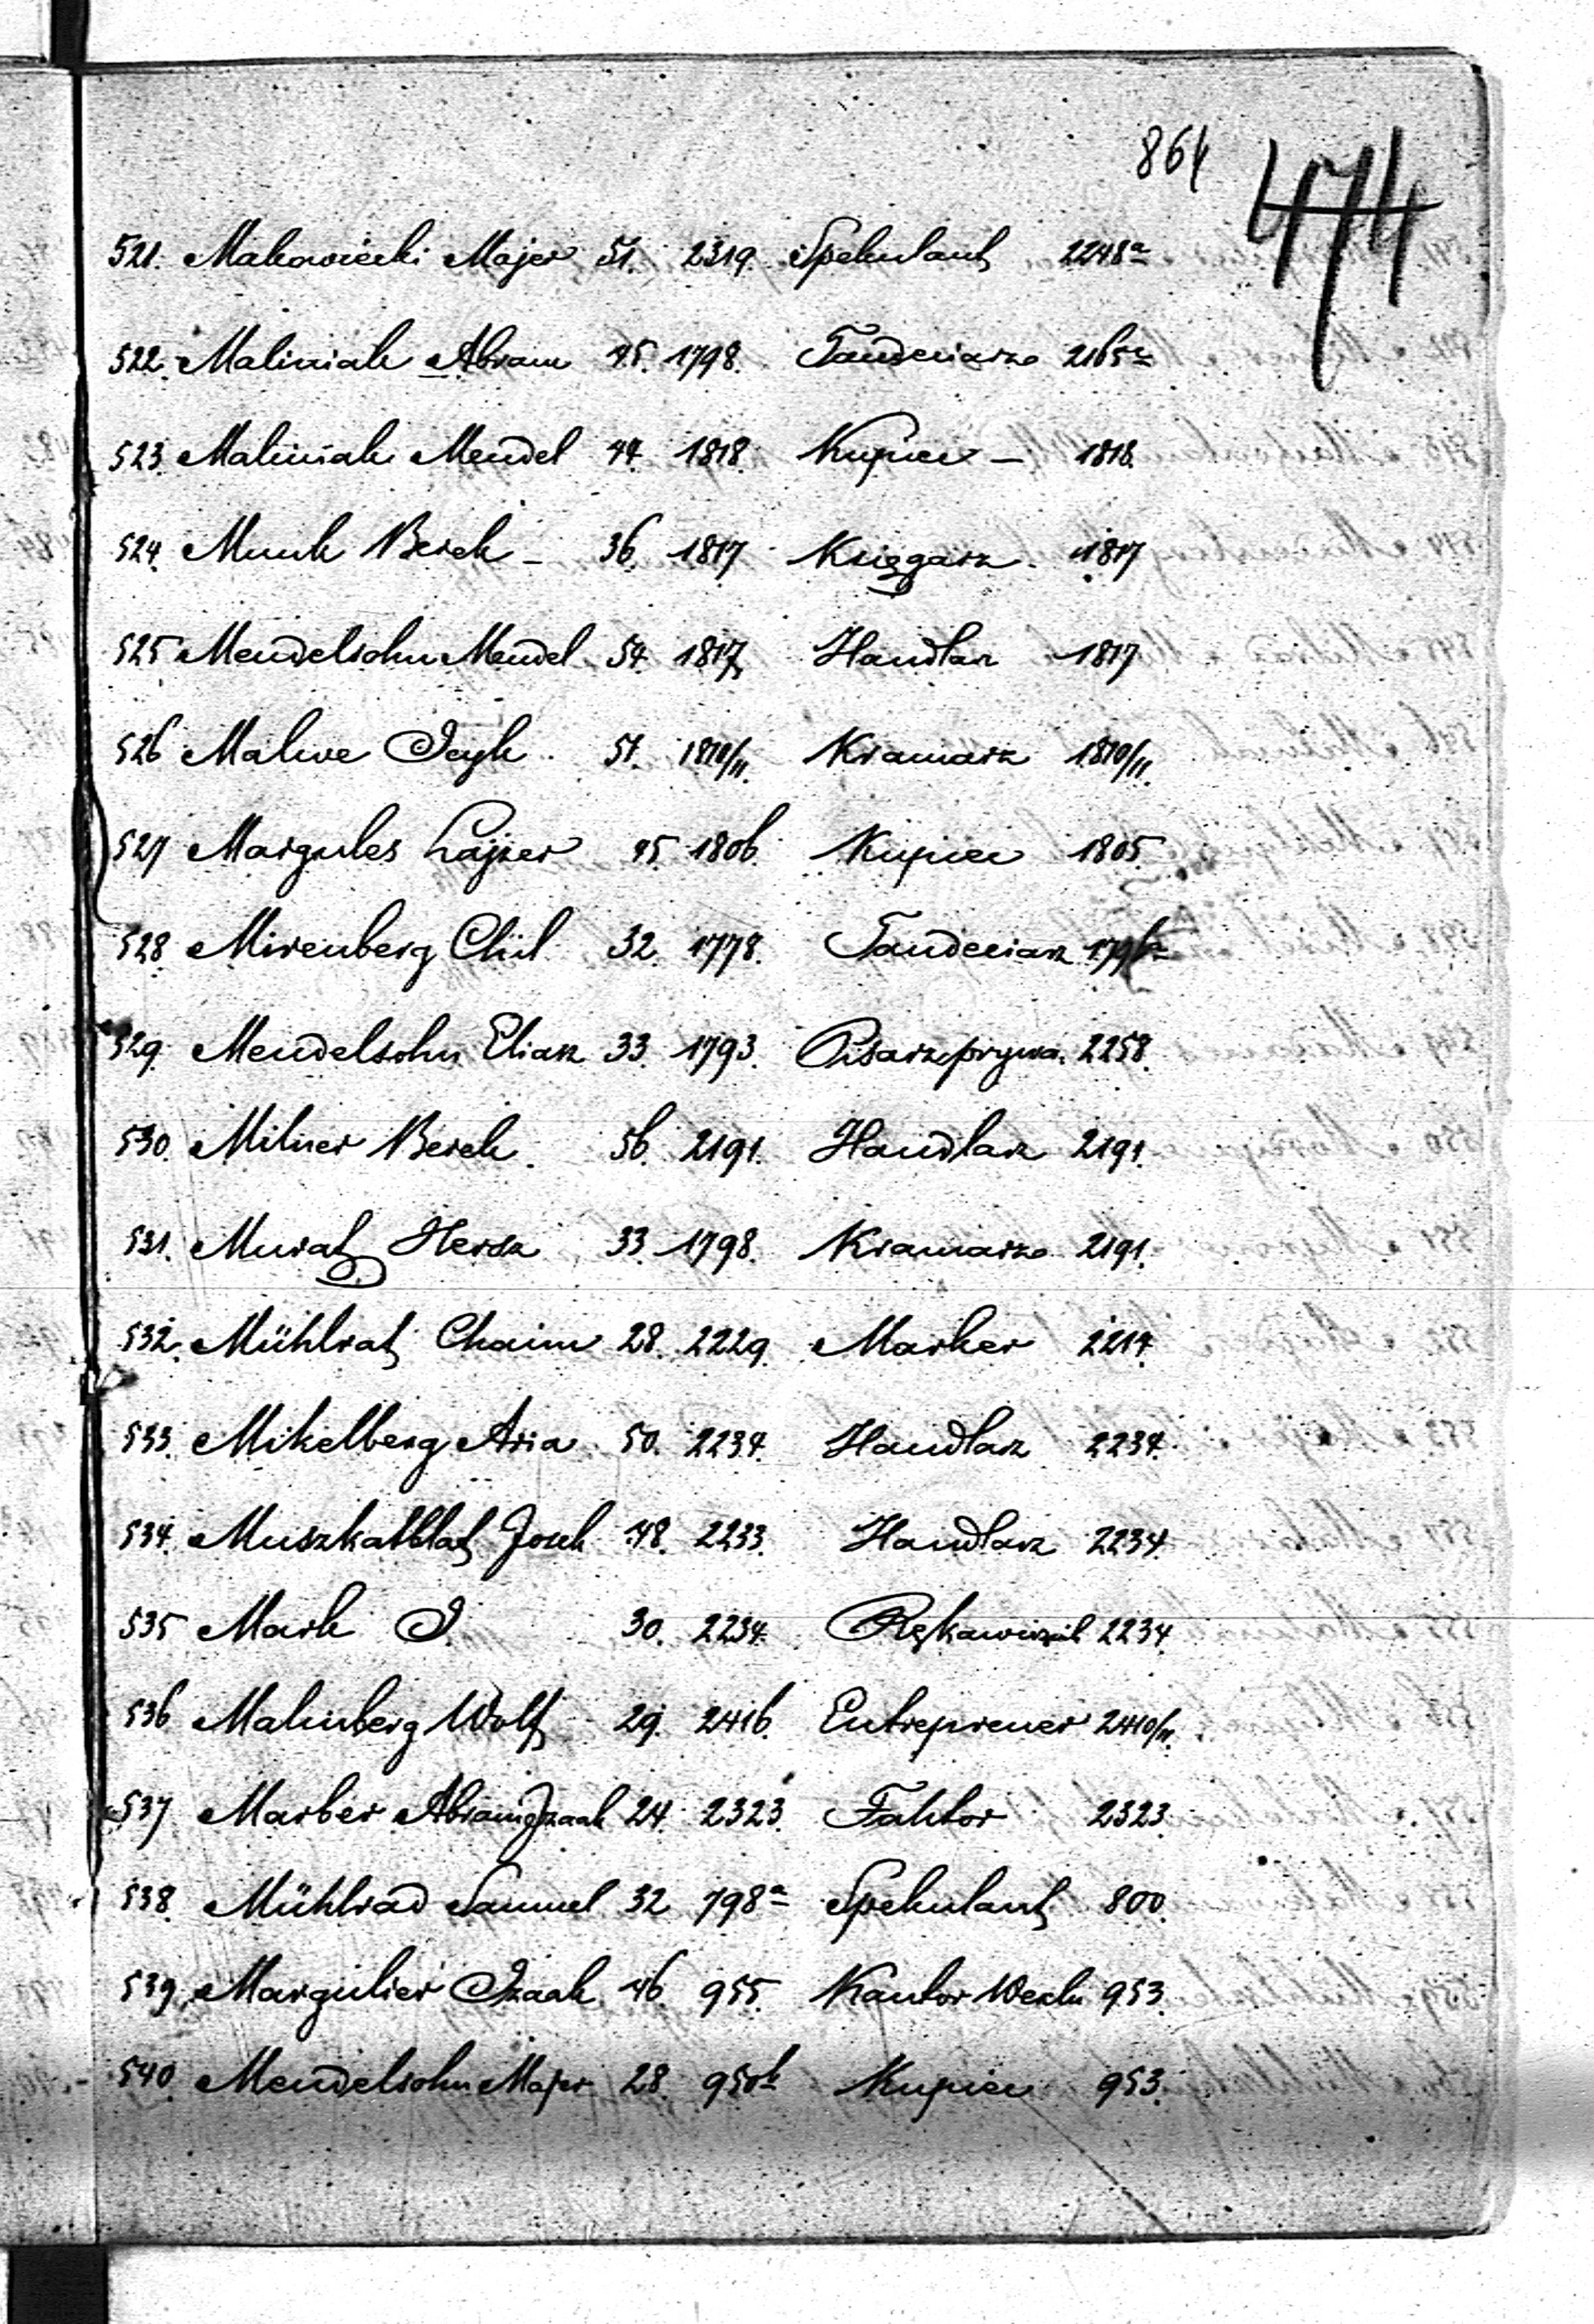 864
474
521. Makowiecki Majer 51. 2319. Spekulant 2248a
522. Maliniak Abram 45. 1798. Tandeciarz 2165a
523. Maliniak Mendel 44. 1818. Kupiec — 1818.
524. Munk Berek — 36. 1817 Księgarz. 1817
525 Mendelsohn Mendel 54. 1817 Handlarz 1817
526 Malwe Icyk 51. 1810/11. Kramarz 1810/11.
527 Margules Lajzer 45 1806. Kupiec 1805.
528 Mirenberg Chil 32. 1778. Tandeciarz
529. Mendelsohn Eliasz 33. 1793. Pisarz prywa. 2258.
530. Milner Berek. 56. 2191. Handlarz 2191.
531. Murat Hersz 33. 1798. Kramarz 2191.
532. Mühlrat Chaim 28. 2229. Marker 2214.
533. Mikelberg Aria. 50. 2234. Handlarz 2234.
534. Muszkatblat Josek 48. 2233. Handlarz 2234.
535 Mark I. 30. 2234. Rękawicznik 2234.
536 Malinberg Wolf 29. 2416. Entreprener 2410/11.
537 Marber Abram Izaak 24. 2323. Faktor 2323.
538. Mühlrad Samuel 32 798a Spekulant 800.
539. Margulier Izaak 46 955. Kantor Wexlu 953.
540. Mendelsohn Majer 28. 950b Kupiec 953.